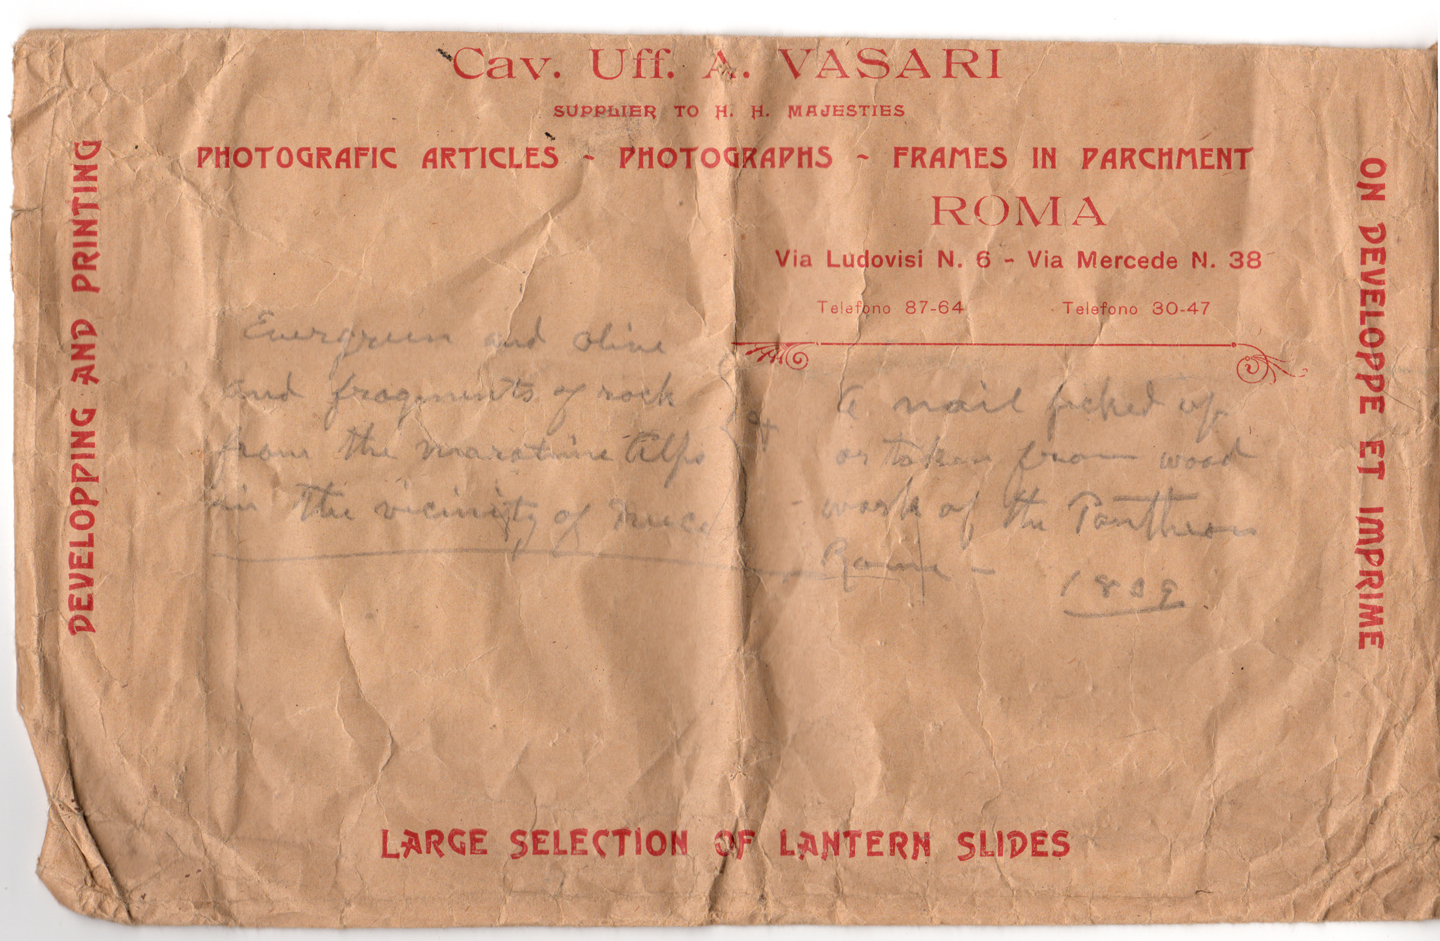 Cav. Uff. A. VASARI
SUPPLIER TO H. H. MAJESTIES
PHOTOGRAFIC ARTICLES - PHOTOGRAPHS - FRAMES IN PARCHMENT
ROMA
Via Ludovisi N. 6 - Via Mercede N. 38
Telefono 87-64 Telefono 30-47
DEVELOPPING AND PRINTING
ON DEVELOPPE ET IMPRIME
Evergreen and olive
and fragments of rock
from the maratime Alps
in the vicinity of
&
A nail picked up
or taken from wood
work of the Pantheon
Rome -
LARGE SELECTION OF LANTERN SLIDES